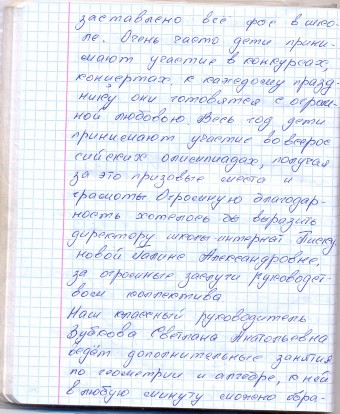 заставлено всё фое в шко-
ле. Очень часто дети прини-
мают участие в конкурсах,
концертах, к каждому празд-
нику они готовятся с огром-
ной любовью. Весь год дети
принимают участие во всерос
сийских олимпиадах, получая
за это призовые места и
грамоты. Огромную благодар-
ность хотелось бы выразить
директору школы-интернат Писку
новой Галине Александровне,
за огромные заслуги руководст-
вом коллектива
Наш классный руководитель
Зубкова Светлана Анатольевна
ведёт дополнительные занятия
по геометрии и алгебре, к ней
в любую минуту можно обра-